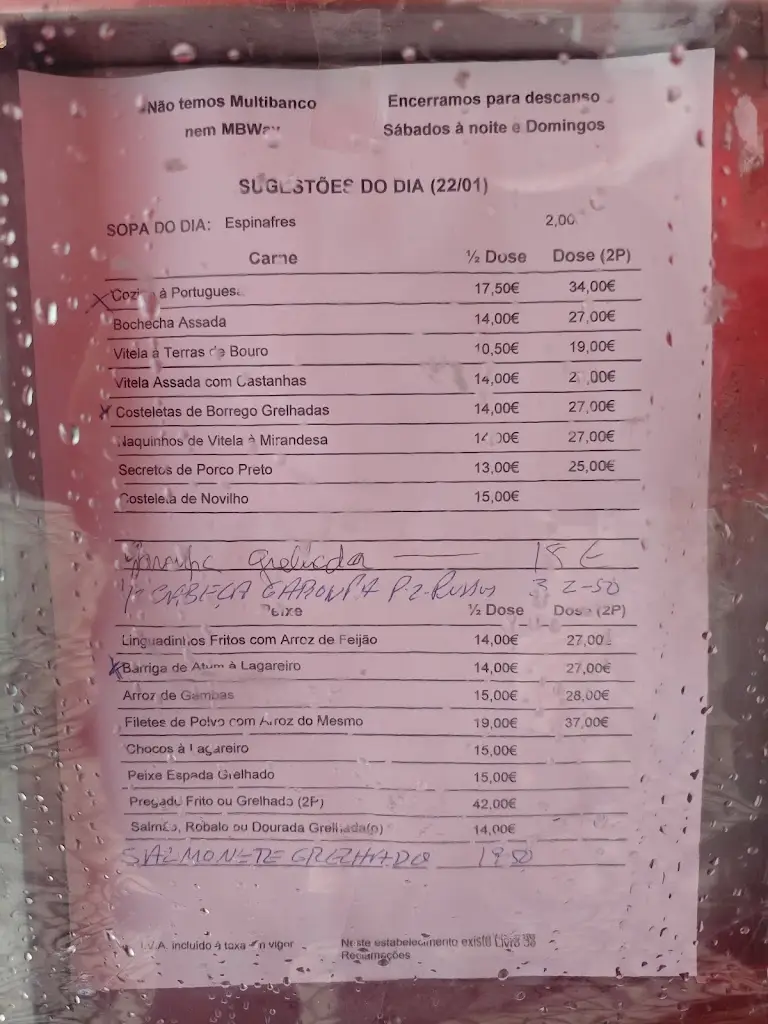 Não temos Multibanco
nem MBWay
Encerramos para descanso
Sábados à noite e Domingos
SUGESTÕES DO DIA (22/01)
SOPA DO DIA: Espinafres 2,00
Carne ½ Dose Dose (2P)
Cozido à Portuguesa 17,50€ 34,00€
Bochecha Assada 14,00€ 27,00€
Vitela à Terras de Bouro 10,50€ 19,00€
Vitela Assada com Castanhas 14,00€
Costeletas de Borrego Grelhadas 14,00€ 27,00€
Naquinhos de Vitela à Mirandesa 14,00€ 27,00€
Secretos de Porco Preto 13,00€ 25,00€
Costeleta de Novilho 15,00€
Garoupa grelhada — 18 €
CABEÇA GAROUPA 32-50
Peixe ½ Dose Dose (2P)
Linguadinhos Fritos com Arroz de Feijão 14,00€ 27,00
Barriga de Atum à Lagareiro 14,00€ 27,00€
Arroz de Gambas 15,00€ 28,00€
Filetes de Polvo com Arroz do Mesmo 19,00€ 37,00€
Chocos à Lagareiro 15,00€
Peixe Espada Grelhado 15,00€
Pregado Frito ou Grelhado (2P) 42,00€
Salmão, Robalo ou Dourada Grelhada(o) 14,00€
SALMONETE GRELHADO 1950
I.V.A. incluído à taxa em vigor
Neste estabelecimento existe Livro de
Reclamações